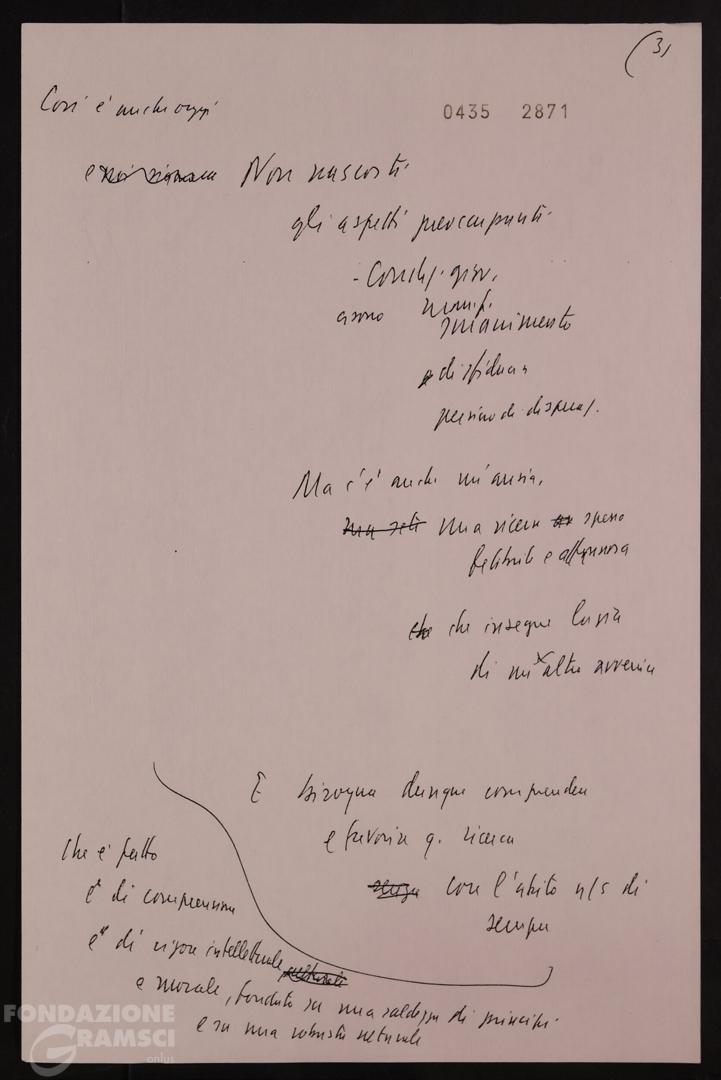 (3)
Così è anche oggi
0435 2871
e Non nascosti
gli aspetti preoccupanti
- Condiz. giov.
manif.
smarrimento
di sfiducia
persino di disperaz.
Ma c'è anche un'ansia,
una ricerca spesso
febbrile e affannosa
che che insegue la via
di un altro avvenire
E bisogna dunque comprendere
e favorire q. ricerca
senza con l'abito n/s di
sempre
che è fatto
e di comprensione
e di rigore intellettuale
e morale, fondato su una saldezza di principi
e su una robusta
FONDAZIONE
GRAMSCI
onlus